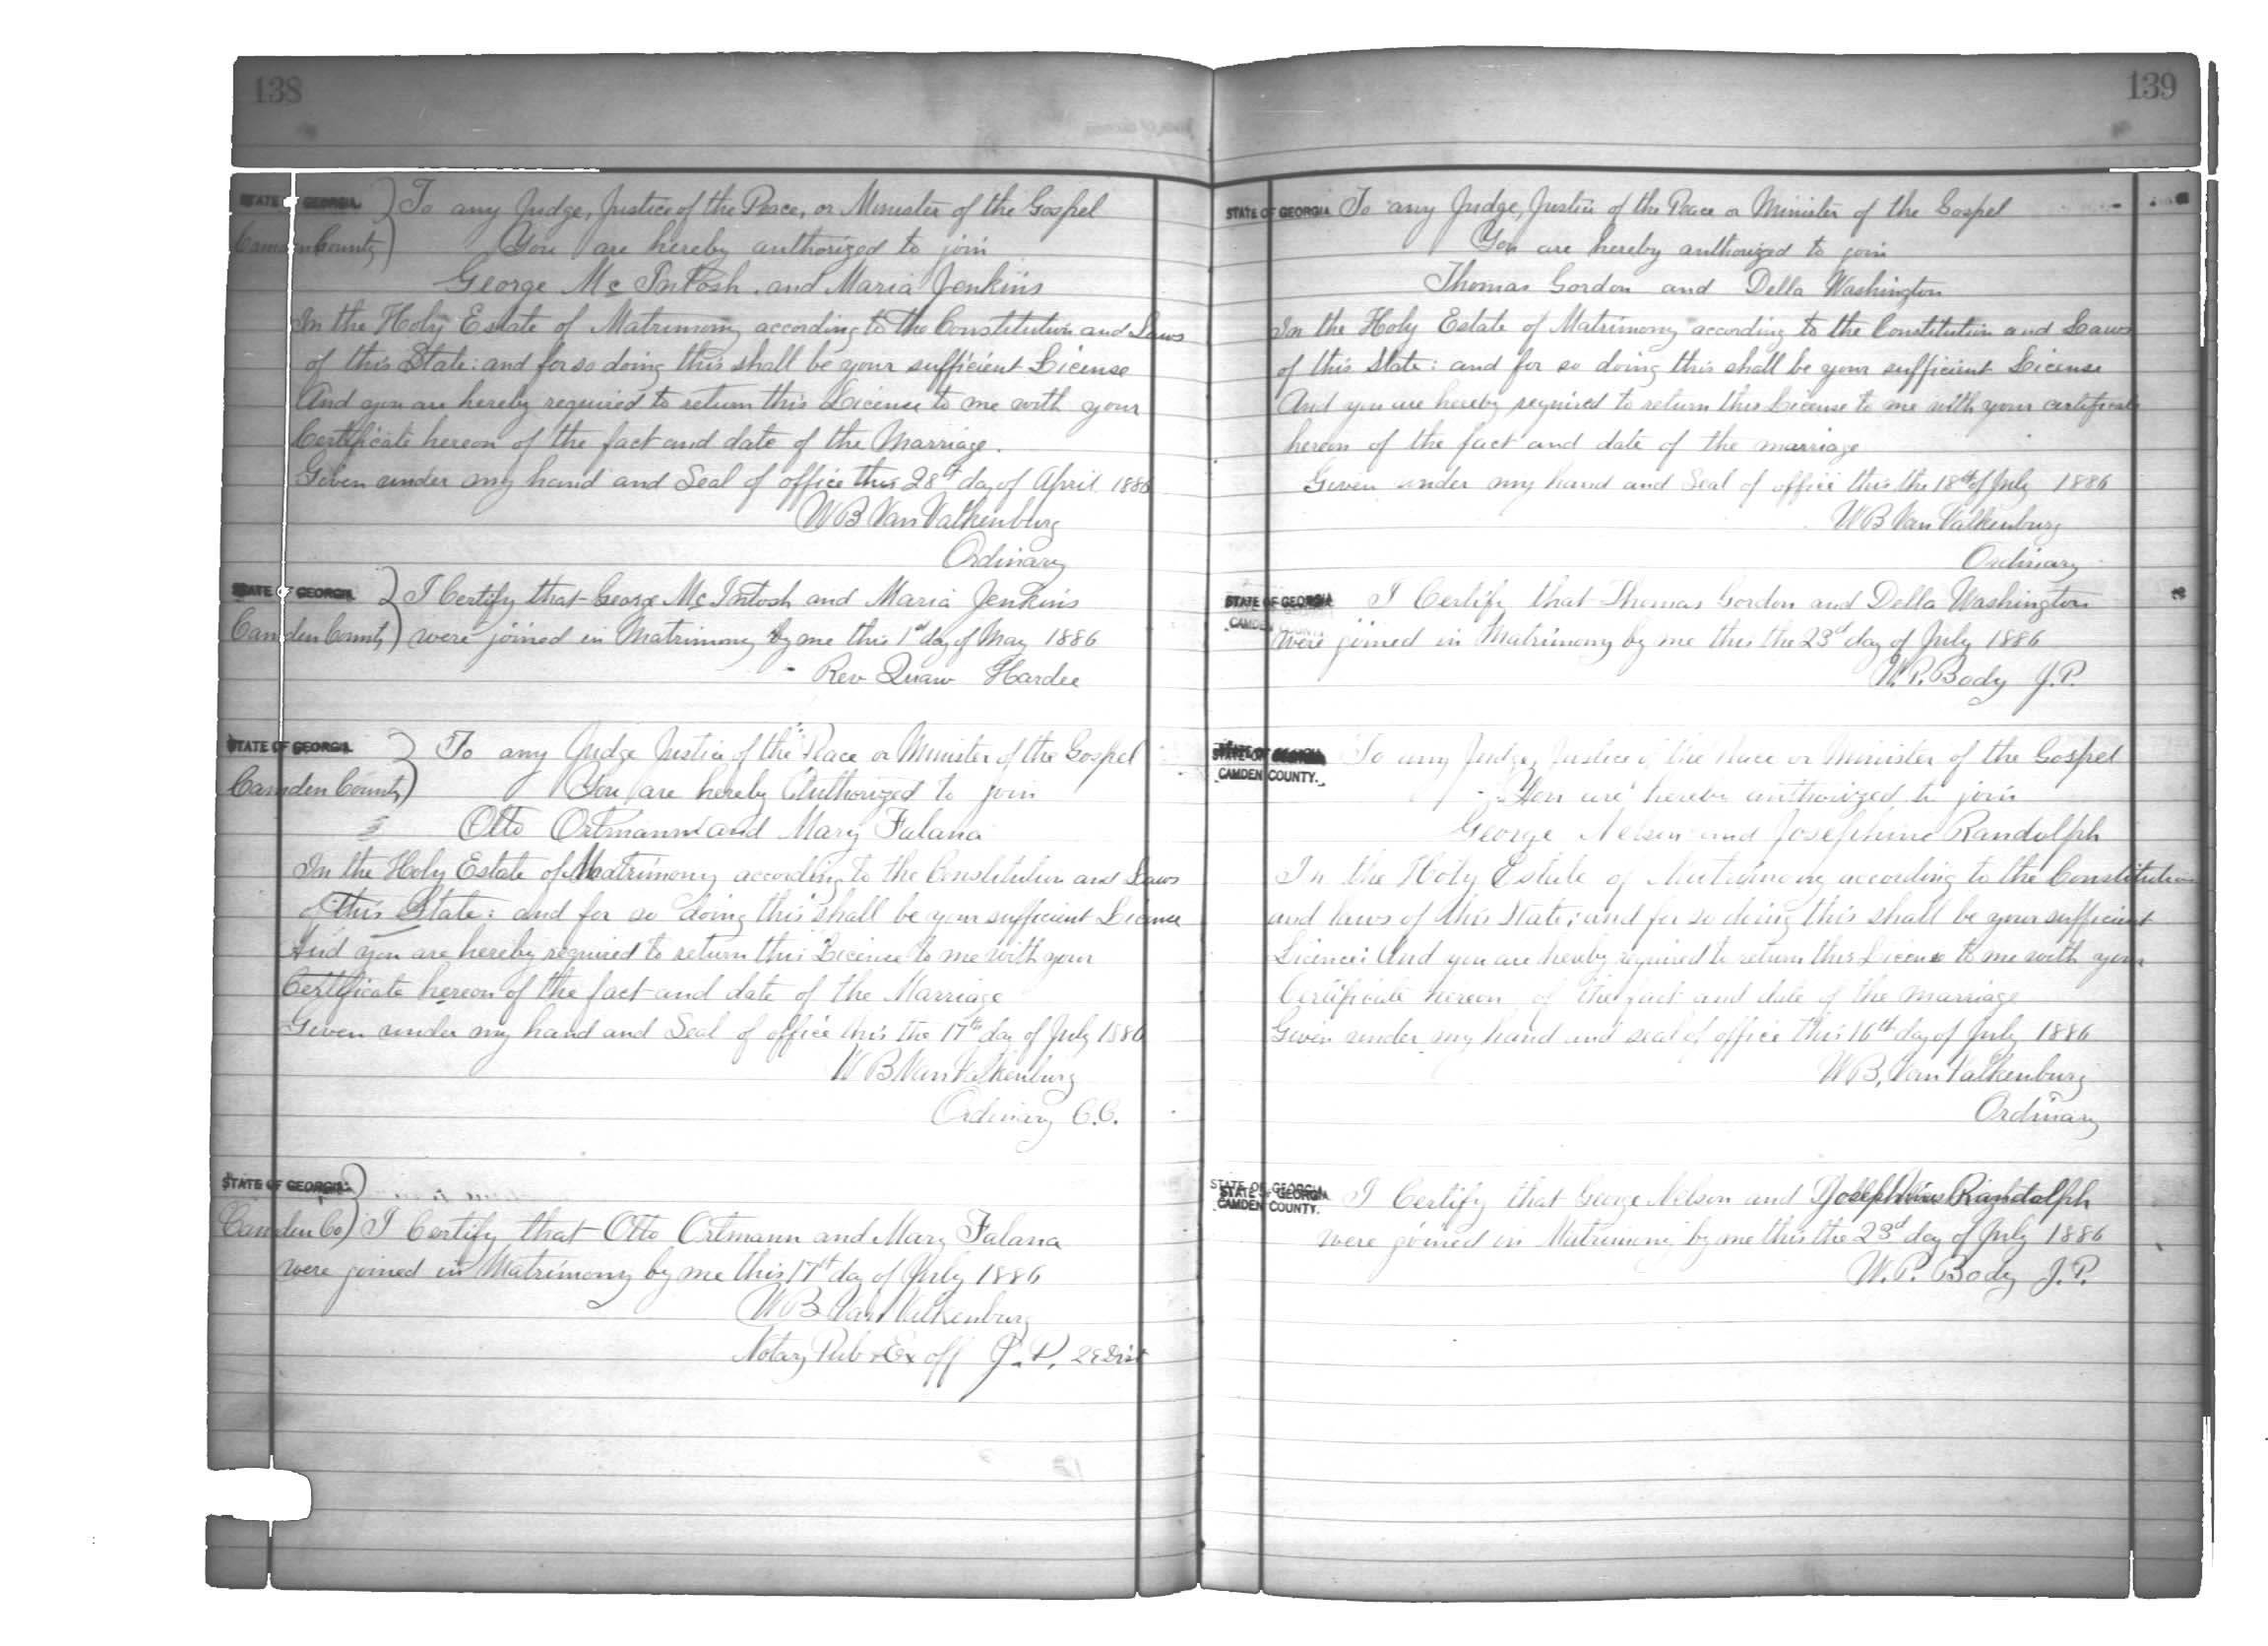 138
STATE OF GEORGIA
Camden County
To any Judge, Justice of the Peace, or Minister of the Gospel
You are hereby authorized to join
George Mc Intosh and Maria Jenkins
In the Holy Estate of Matrimony according to the Constitution and Laws
of this State: and for so doing this shall be your sufficient License
And you are hereby required to return this License to me with your
Certificate hereon of the fact and date of the Marriage.
Given under my hand and Seal of office this 28th day of April 1886
W B Van Valkenburg
Ordinary
STATE OF GEORGIA
Camden County
I Certify that George Mc Intosh and Maria Jenkins
were joined in Matrimony by me this 1st day of May 1886
Rev Quaw Hardee
STATE OF GEORGIA
Camden County
To any Judge Justice of the Peace or Minister of the Gospel
You are hereby Authorized to join
Otto Ortmann and Mary Falana
In the Holy Estate of Matrimony according to the Constitution and Laws
of this State: and for so doing this shall be your sufficient License
And you are hereby required to return this License to me with your
Certificate hereon of the fact and date of the Marriage
Given under my hand and Seal of office this the 17th day of July 1886
W B Van Valkenburg
Ordinary C.C.
STATE OF GEORGIA
Camden Co
I Certify that Otto Ortmann and Mary Falana
were joined in Matrimony by me this 17th day of July 1886
W B Van Valkenburg
Notary Pub & Ex off J. P. 28 Dist
139
STATE OF GEORGIA
To any Judge, Justice of the Peace or Minister of the Gospel
You are hereby authorized to join
Thomas Gordon and Della Washington
In the Holy Estate of Matrimony according to the Constitution and Laws
of this State: and for so doing this shall be your sufficient License
And you are hereby required to return this License to me with your certificate
hereon of the fact and date of the marriage
Given under my hand and Seal of office this the 18th of July 1886
W B Van Valkenburg
Ordinary
STATE OF GEORGIA
CAMDEN COUNTY
I Certify that Thomas Gordon and Della Washington
were joined in Matrimony by me this the 23d day of July 1886
W. P. Body J.P.
STATE OF GEORGIA
CAMDEN COUNTY.
To any Judge, Justice of the Peace or Minister of the Gospel
You are hereby authorized to join
George Nelson and Josephine Randolph
In the Holy Estate of Matrimony according to the Constitution
and laws of this State; and for so doing this shall be your sufficient
License: And you are hereby required to return this License to me with your
Certificate hereon of the fact and date of the marriage
Given under my hand and seal of office this 16th day of July 1886
W B. Van Valkenburg
Ordinary
STATE OF GEORGIA
STATE OF GEORGIA
CAMDEN COUNTY.
I Certify that George Nelson and Josephine Randolph
were joined in Matrimony by me this the 23d day of July 1886
W. P. Body J. P.